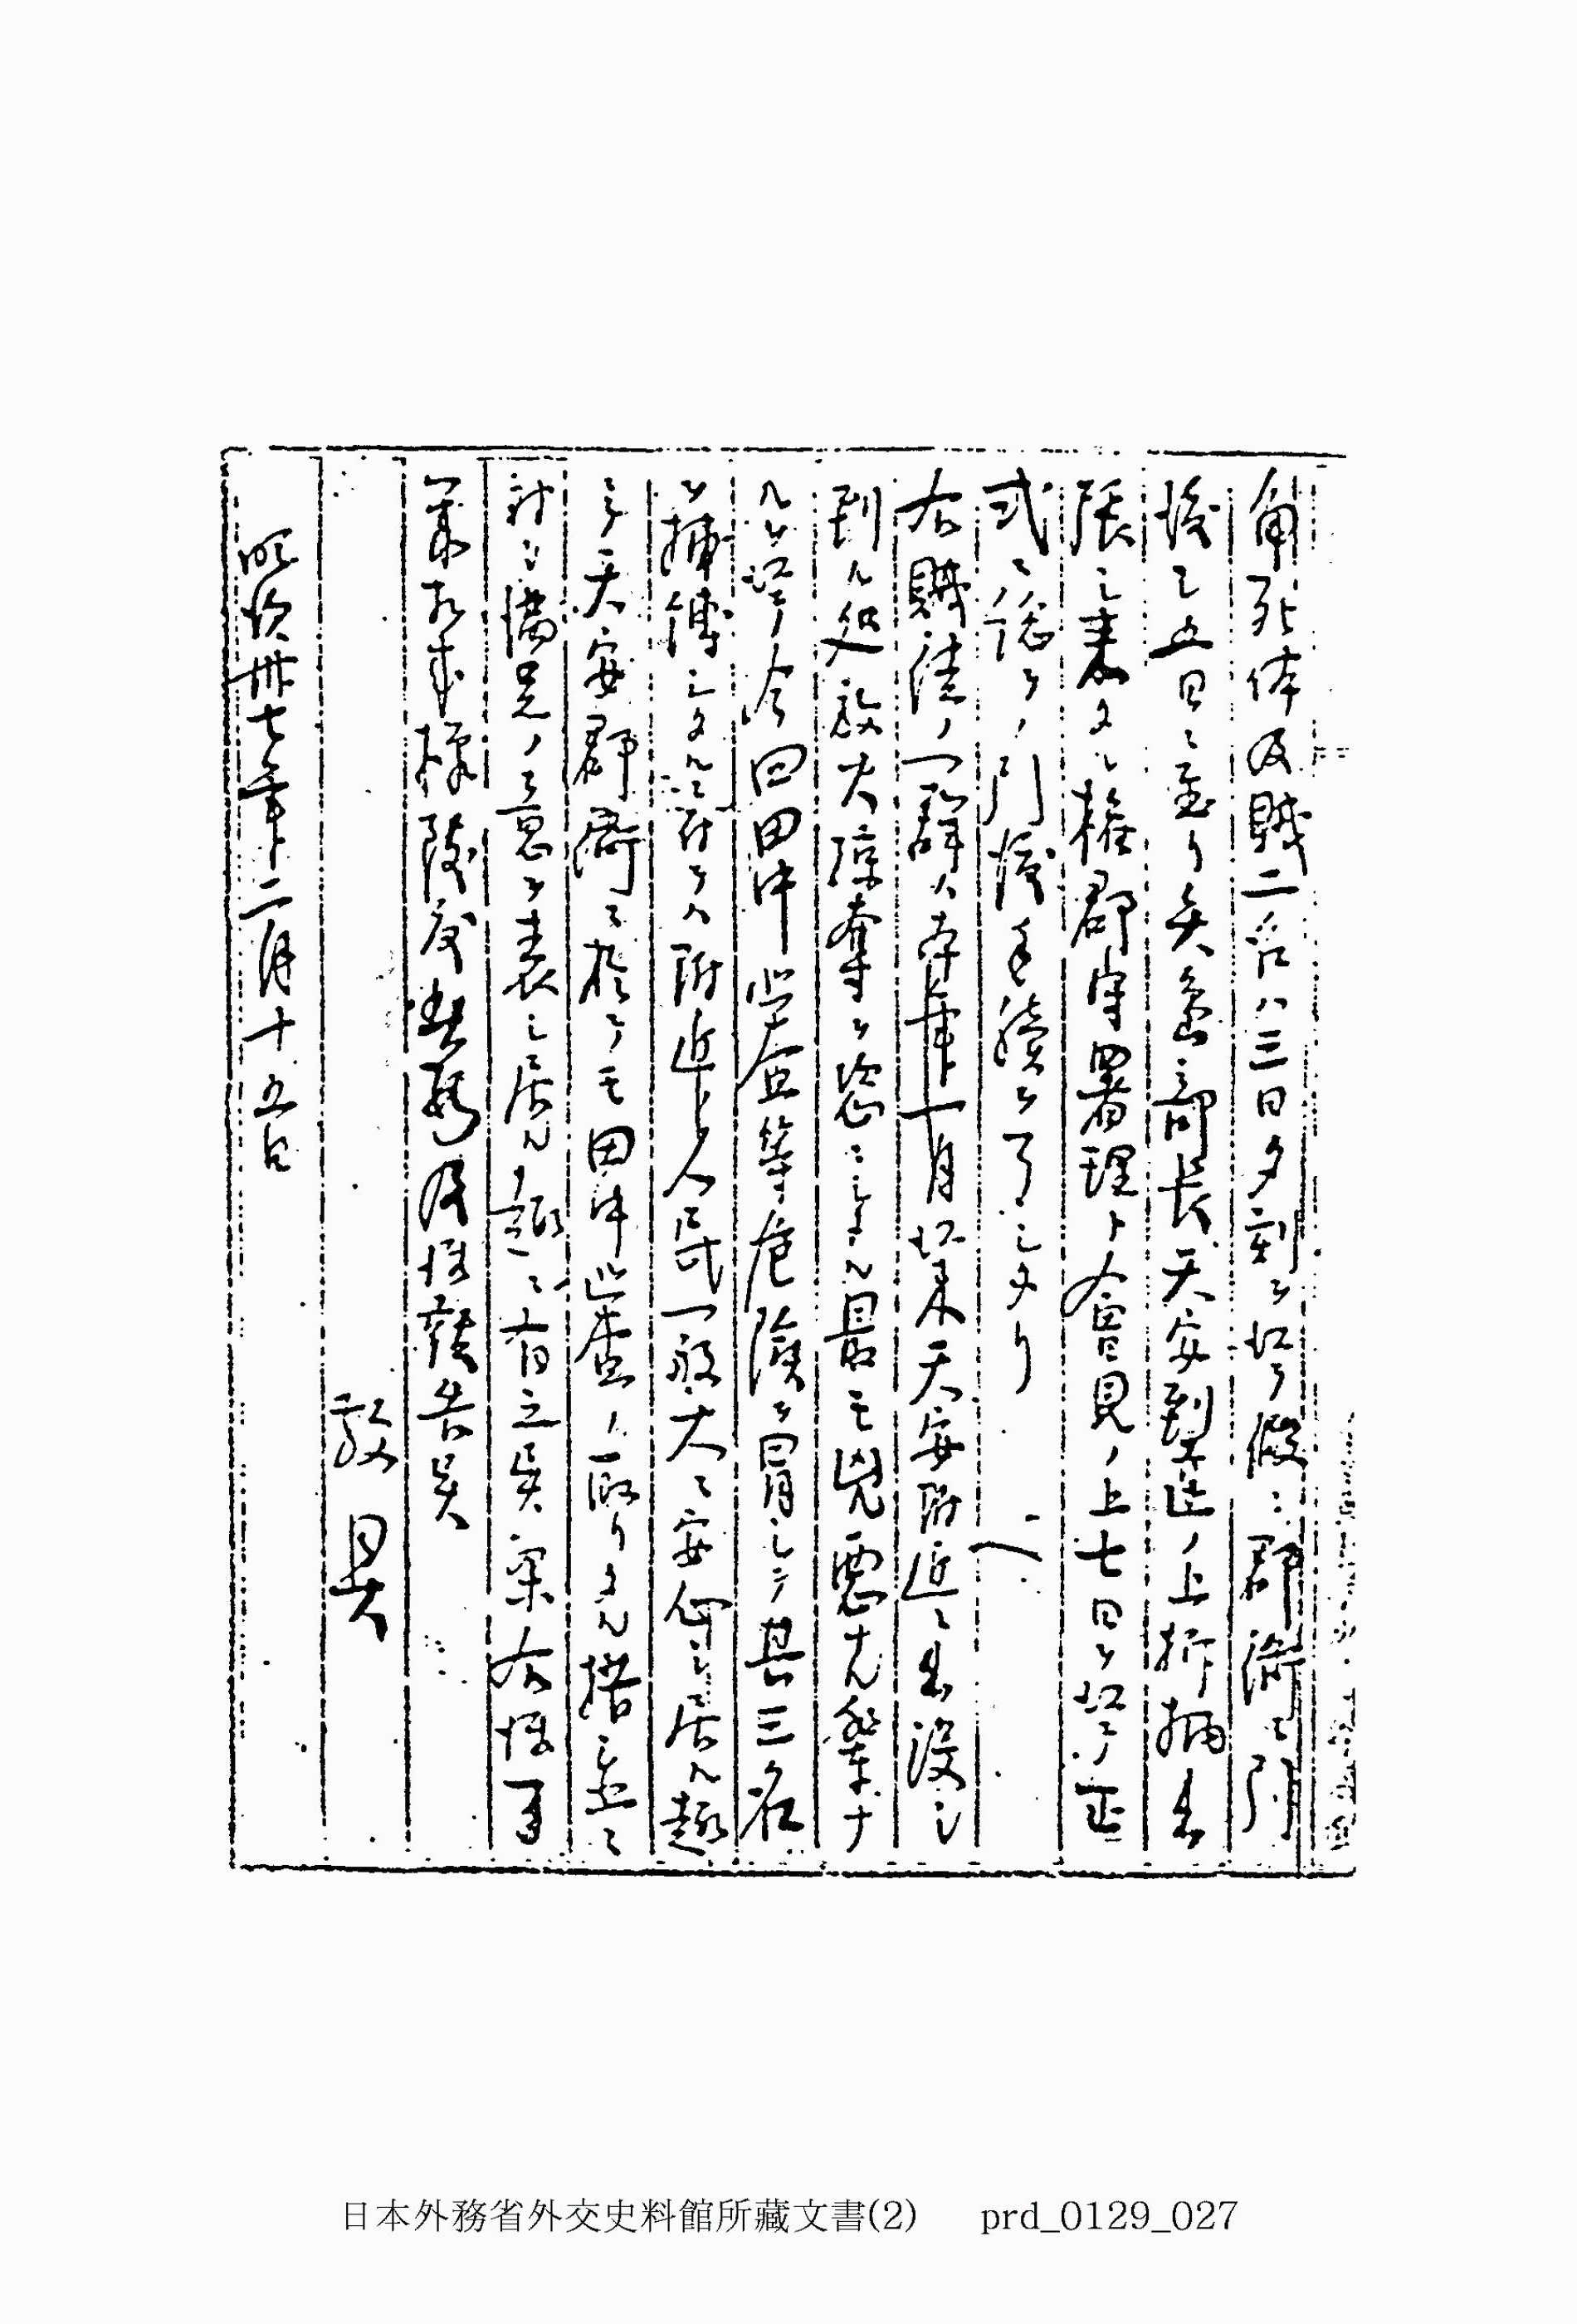 角死体及賊二名ハ三日夕刻ヲ以テ假ニ郡衙ニ引
後シ五日ニ至リ矢島部長天安到着ノ上折柄出
張シ来タル權郡守署理ト會見ノ上七日ヲ以テ正
式ニ之ガ引渡手續ヲ了シタリ
右賊徒ノ一群ハ本年一月以来天安附近ニ出没シ
到ル処放火掠奪ヲ恣ニシタル最モ兇悪ナル輩ナ
ルヲ以テ今回田中巡査等危險ヲ冒シテ其三名
ヲ捕縛シタルニ付テハ附近ノ人民一般大ニ安心シ居ル趣
ニテ天安郡衙ニ於テモ田中巡査ノ取リタル措置ニ
対シ満足ノ意ヲ表シ居ル趣ニ有之候案右様
御承
及御報告候
敬具
明治卅七年二月十五日
日本外務省外交史料館所藏文書(2) prd_0129_027